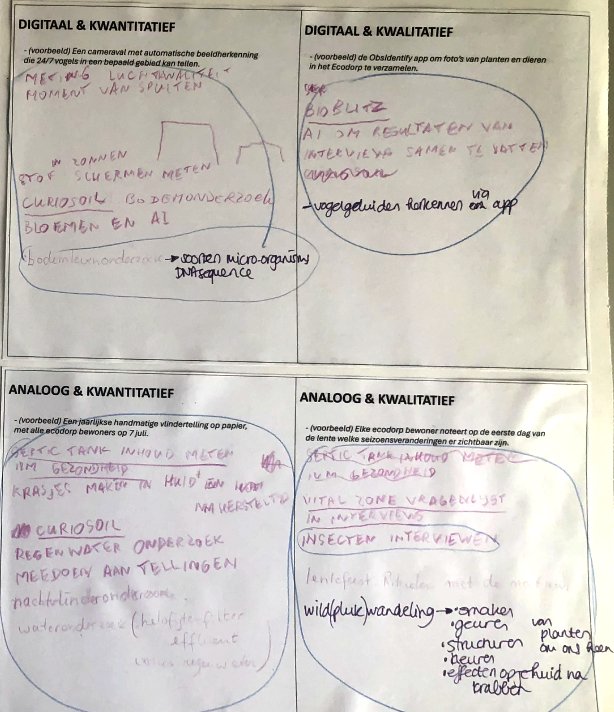 DIGITAAL & KWANTITATIEF
- (voorbeeld) Een cameraval met automatische beeldherkenning
die 24/7 vogels in een bepaald gebied kan tellen.
METING LUCHTKWALITEIT
MOMENT VAN SPUITEN
IN ZONNEN
STOF SCHERMEN METEN
CURIOSOIL BODEMONDERZOEK
BLOEMEN EN AI
bodemlevenonderzoek → soorten micro-organisms
DNA sequence
DIGITAAL & KWALITATIEF
- (voorbeeld) de ObsIdentify app om foto's van planten en dieren
in het Ecodorp te verzamelen.
BIOBLITZ
AI OM RESULTATEN VAN
INTERVIEWS SAMEN TE VATTEN
- vogelgeluiden herkennen via app
ANALOOG & KWANTITATIEF
- (voorbeeld) Een jaarlijkse handmatige vlindertelling op papier,
met alle ecodorp bewoners op 7 juli.
SEPTIC TANK INHOUD METEN
IVM GEZONDHEID
KRASJES MAKEN IN HUID + EN
CURIOSOIL
REGENWATER ONDERZOEK
MEEDOEN AAN TELLINGEN
nachtvlinderonderzoek
wateronderzoek (helofytenfilter
efficient
ANALOOG & KWALITATIEF
- (voorbeeld) Elke ecodorp bewoner noteert op de eerste dag van
de lente welke seizoensveranderingen er zichtbaar zijn.
SEPTIC TANK INHOUD METEN
IVM GEZONDHEID
VITAL ZONE VRAGENLIJST
IN INTERVIEWS
INSECTEN INTERVIEWEN
lentefeest. Rituelen met de
wild(pluk)wandeling → • smaken
• geuren van planten
• structuren om ons heen
• kleuren
• effecten op je huid na
krabben